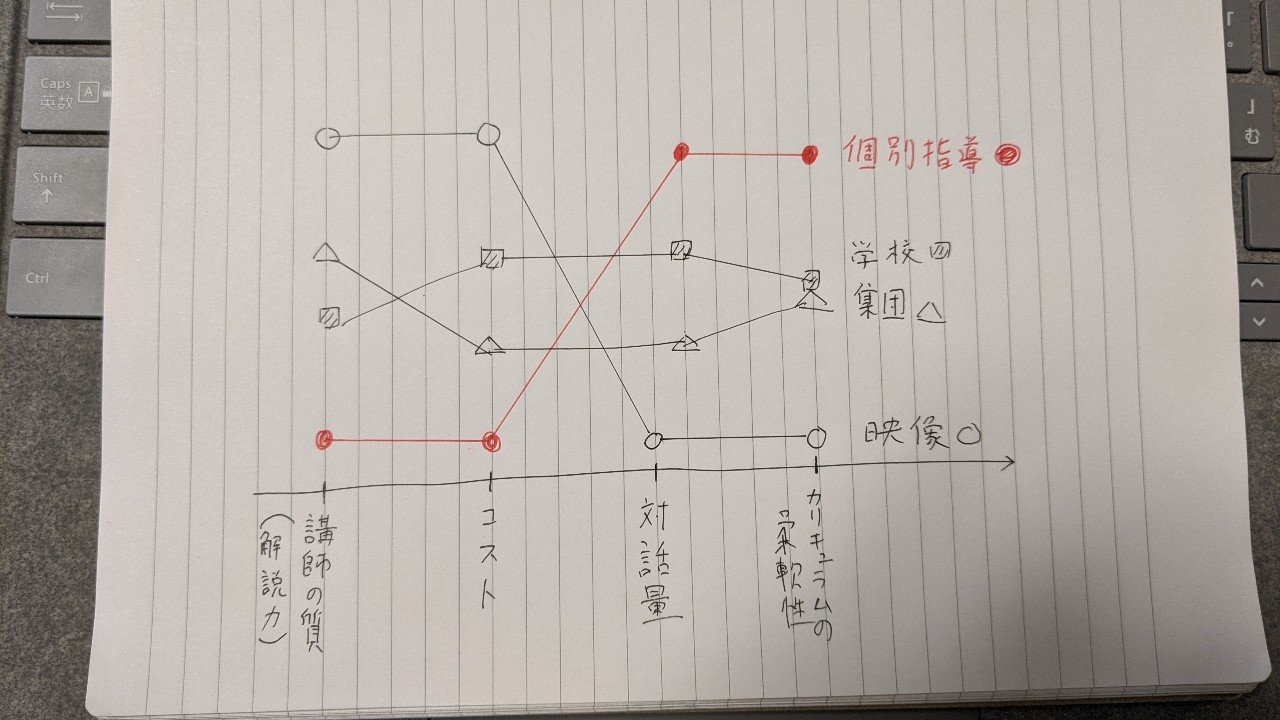 Caps
英数
A
Shift
↑
Ctrl
「
。
」
む
個別指導
学校
集団
映像
講師の質
(解説力)
コスト
対話量
カリキュラムの
柔軟性